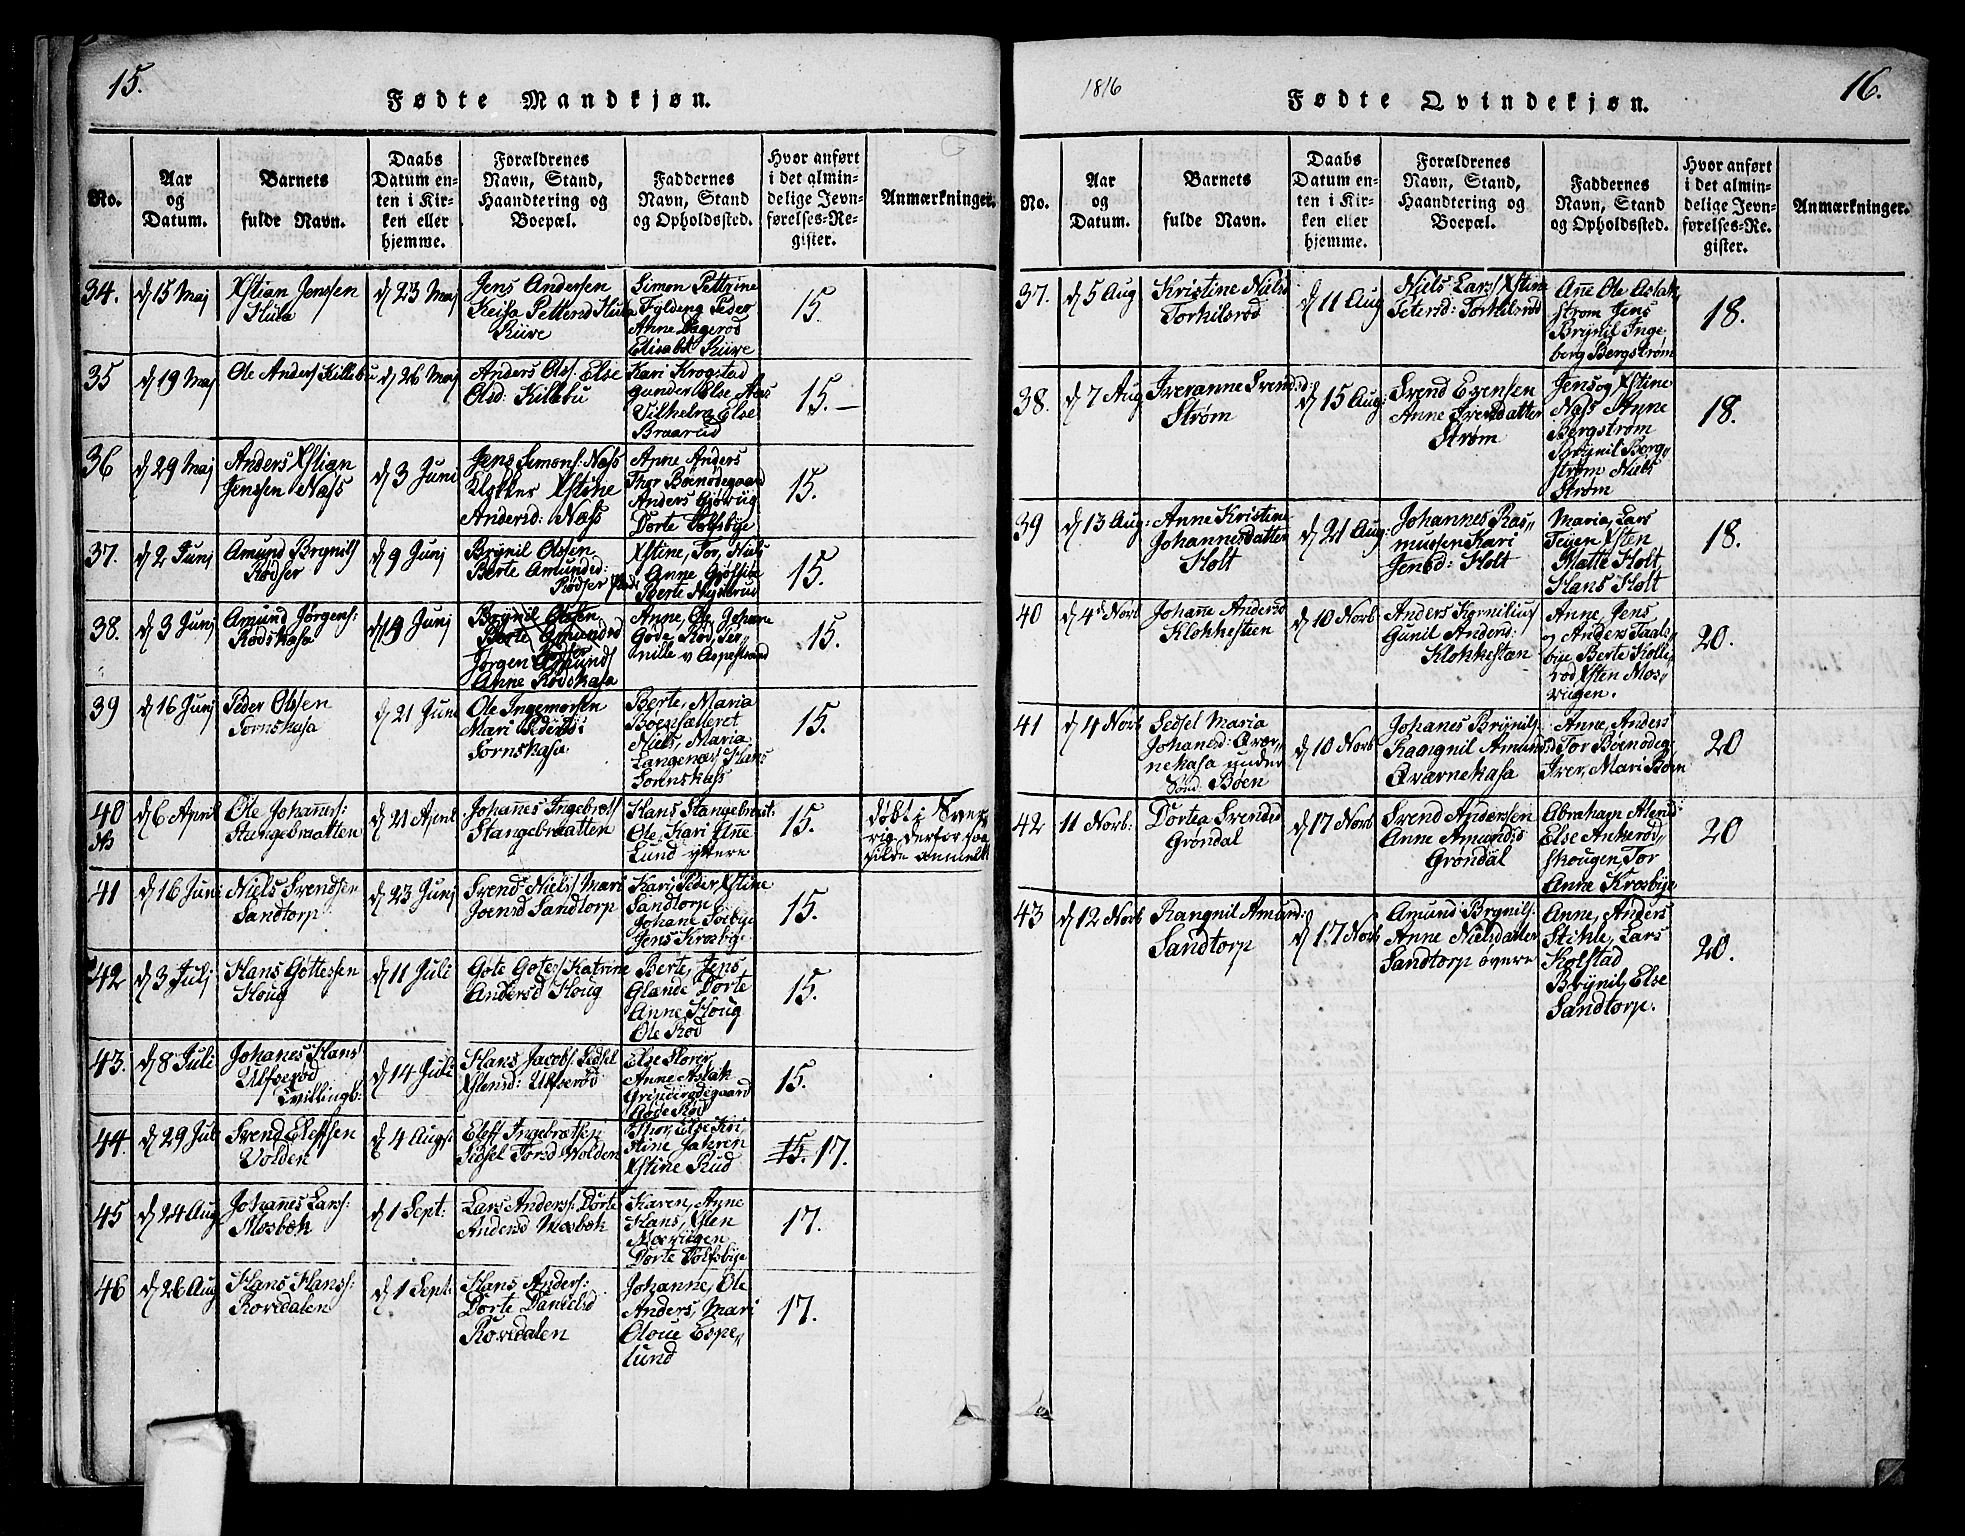 15.
Fødte Mandkjøn.
No.
Aar
og
Datum.
Barnets
fulde Navn.
Daabs
Datum en-
ten i Kir-
ken eller
hjemme.
Forældrenes
Navn, Stand,
Haandtering og
Boepæl.
Faddernes
Navn, Stand
og Opholdssted.
Hvor anført
i det almin-
delige Jevn-
førelses-Re-
gister.
Anmærkninger.
34.
d 15 Maj
Xstian Jenssen
d 23 Maj
Jens Andersen
Rüve
Simon Pettrine
Elisabt Rüve
15.
35
d 19 Maj
Ole Anders Killebu
d 26 Maj
Anders Ols. Else
Olsd: Killebu
Kari Krogstad
Gunder Else Aas
Vilhelm Else
Braarud
15.
36
d 29 Maj
Anders Xstian
Jenssen Næss
d 3 Juni
Jens Simons: Næss
Klokker Xstine
Andersd: Næss
Anne Anders
Thor Böenødegaard
Dorte Tolfsbye
15.
37.
d 2 Junj
Amund Brynils
Rødser
d 9 Junj
Brynil Olssen
Berte Amundsd:
Rødser
Xstine, Tor, Niels
Anne
15.
38.
d 3 Junj
Amund Jørgens:
Rødskasa
d 19 Junj
Brynil Olsen
Berte Amundsd
Rødser
Jørgen Amunds
Anne Rødskasa
Anne, Ole, Johanne
15.
39
d 16 Junj
Peder Olssen
Tornskasa
d 21 June
Ole Ingemorsen
Mari Pedersd:
Tornskasa
Berte, Maria
Niels, Maria
15.
40
d 6 April
Ole Johannes:
Stangebraatten
d 21 April
Johannes Ingebrets
Stangebraatten
Hans Stangebraat:
Ole, Kari Anne
Lund yttere
15.
døbt i Sver-
rig, derfor saa
silde anmeldt
41
d 16 Juni
Niels Svendsen
Sandtorp
d 23 Junj
Svend Niels. Mari
Joensd Sandtorp
Kari, Peder Xstine
Sandtorp
Johane
Jens Krosbye
15.
42
d 3 Julj
Hans Gottessen
Houg
d 11 Juli
Gote Gotes. Katrine
Andersd Houg
Berte, Jens
Glande Dorte
Anne Houg
Ole Rød
15.
43.
d 8 Juli
Johanes Hans
Ulfserød
Tvillingb:
d 14 Juli
Hans Jacobs. Sidsel
Xstensd: Ulfserød
Anne Aslak
15.
44.
d 29 Juli
Svend Eleffsen
Volden
d 4 Augst
Eleff Ingebretsen
Sidsel Torsd Wolden
Thor, Else Kri
stine
Xstine Rud
15. 17.
45
d 24 Aug
Johannes Lars:
Mosbæk
d 1 Sept:
Lars Anders: Dorte
Andersd Mosbæk
Karen, Anne
Hans, Xsten
Dorte Tolfsbye
17.
46
d 26 Aug
Hans Hans:
Rovedalen
d 1 Sept:
Hans Anders:
Dorte Danielsd
Rovedalen
Johanne, Ole
Anders, Mari
Oloue Espe-
lund
17.
1816
Fødte Qvindekjøn.
16.
No.
Aar
og
Datum.
Barnets
fulde Navn.
Daabs
Datum en-
ten i Kir-
ken eller
hjemme.
Forældrenes
Navn, Stand,
Haandtering og
Boepæl.
Faddernes
Navn, Stand
og Opholdssted.
Hvor anført
i det almin-
delige Jevn-
førelses-Re-
gister.
Anmærkninger.
37.
d 5 Aug
Kristine Nielsd
Torkilsrød
d 11 Aug
Niels Lars. Xstine
Petersd: Torkilsrød
Anne Ole Aslak
Strøm Jens
Brynil Inge
berg Bergstrøm
18.
38.
d 7 Aug
Iveranne Svendsd:
Strøm
d 15 Aug:
Svend Evensen
Anne Iversdatter
Strøm
Jens og Xstine
Næss Anne
Bergstrøm
Brynil Berg-
strøm Niels
Strøm
18.
39
d 13 Aug:
Anne Kristine
Johannesdatter
Holt
d 21 Aug
Johannes Ras-
mussen Kari
Jensd: Holt
Maria, Lars
Teigen Xsten
Matte Holt
Hans Holt
18.
40
d 4de Novb
Johanne Andersd
Klokkestien
d 10 Novb
Anders Kornilius
Gunil Andersd:
Klokkestien
Anne, Jens
og Anders Taals
bye Berte Kolle
rød Xsten Mos-
viigen.
20.
41
d 4 Novb
Sedsel Maria
Johanesd: Qvær-
nekasa under
Sønd: Bøen
d 10 Novb
Johanes Brynils.
Rangnil Amundsd
Qværnekasa
Anne, Anders
Tor Bøenødeg:
Iver, Mari Bøen
20
42
11 Novb:
Dortea Svendsd
Grøndal
d 17 Novb
Svend Andersen
Anne Amundsd
Grøndal
Abraham
Else Ankerød-
skougen, Tor
Anne Krosbye
20
43
d 12 Novb
Rangnil Amundsd:
Sandtorp
d 17 Novb
Amund Brynils:
Anne Nielsdatter
Sandtorp øvere
Anne, Anders
Stikle, Lars
Kolstad
Brynil, Else
Sandtorp.
20.